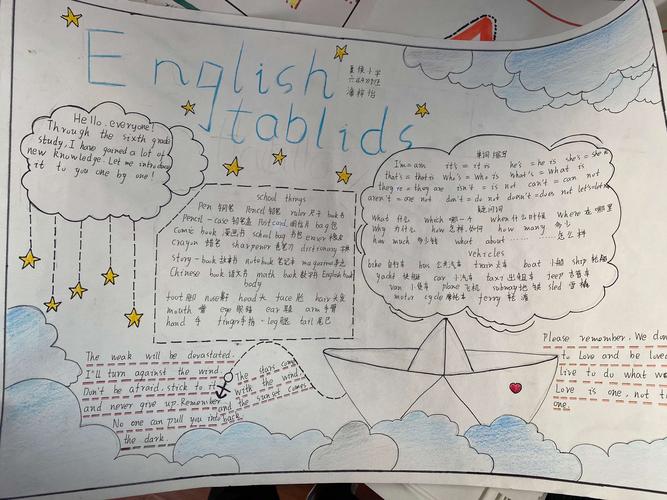 English
tablids
Hello. everyone!
Through the sixth grade
study, I have gained a lot of
new knowledge. Let me introduce
it to you one by one!
school things
Pen 钢笔 Pencil 铅笔 ruler 尺子 book 书
Pencil-case 铅笔盒 Post card 明信片 bag 包
comic book 漫画书 school bag 书包 eraser 橡皮
crayon 蜡笔 sharpener 卷笔刀 dictionary
story-book 故事书 notebook 笔记本 magazine
Chinese book 语文书 math book 数学书 English book
body
foot 脚 nose 鼻子 head 头 face 脸 hair 头发
mouth 嘴 eye 眼睛 ear 耳朵 arm 手臂
hand 手 finger 手指 leg 腿 tail 尾巴
单词缩写
I'm=am it's=it is he's=he is she's=she is
that's=that is who's=who is what's=what is
they're=they are isn't=is not can't=can not
aren't=are not don't=do not doesn't=does not let's=let us
疑问词
What 什么 which 哪一个 when 什么时候 Where 在哪里
Why 为什么 how 怎样,如何 how many 多少
how much 多少钱 what about 怎么样
vehicles
bike 自行车 bus 公共汽车 train 火车 boat 小船 ship 轮船
yacht 快艇 car 小汽车 taxi 出租车 jeep 吉普车
van 小货车 plane 飞机 subway 地铁 sled 雪橇
motor cycle 摩托车 ferry 轮渡
The weak will be devastated.
I'll turn against the wind.
Don't be afraid. stick to it
and never give up. Remember
No one can pull you into
the dark.
The stars come
with the wind
and the sunset comes
back.
Please remember. We don
to Love and be love
live to do what we
Love is one, not to
one.